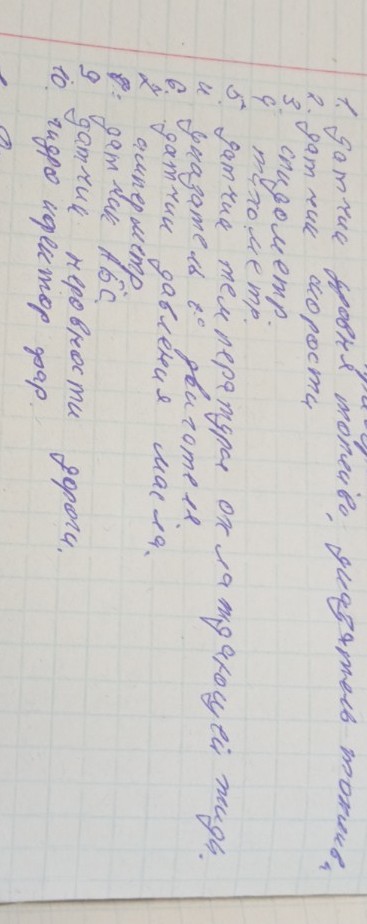 1. датчик уровня топлива, указатель топлив.
2. датчик скорости
3. спидометр.
4. тахометр.
5 датчик температуры охлаждающей жидк.
указатель t° двигателя
6. датчик давления масла.
амперметр
8. датчик АБС
9 датчик неровности дороги.
10. гидро корректор фар.